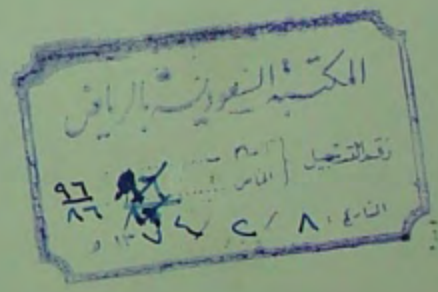 المكتبة السعودية بالرياض
رقم التسجيل { العام
الخاص ٩٦ / ٨٦
التاريخ ٨ / ٢ /